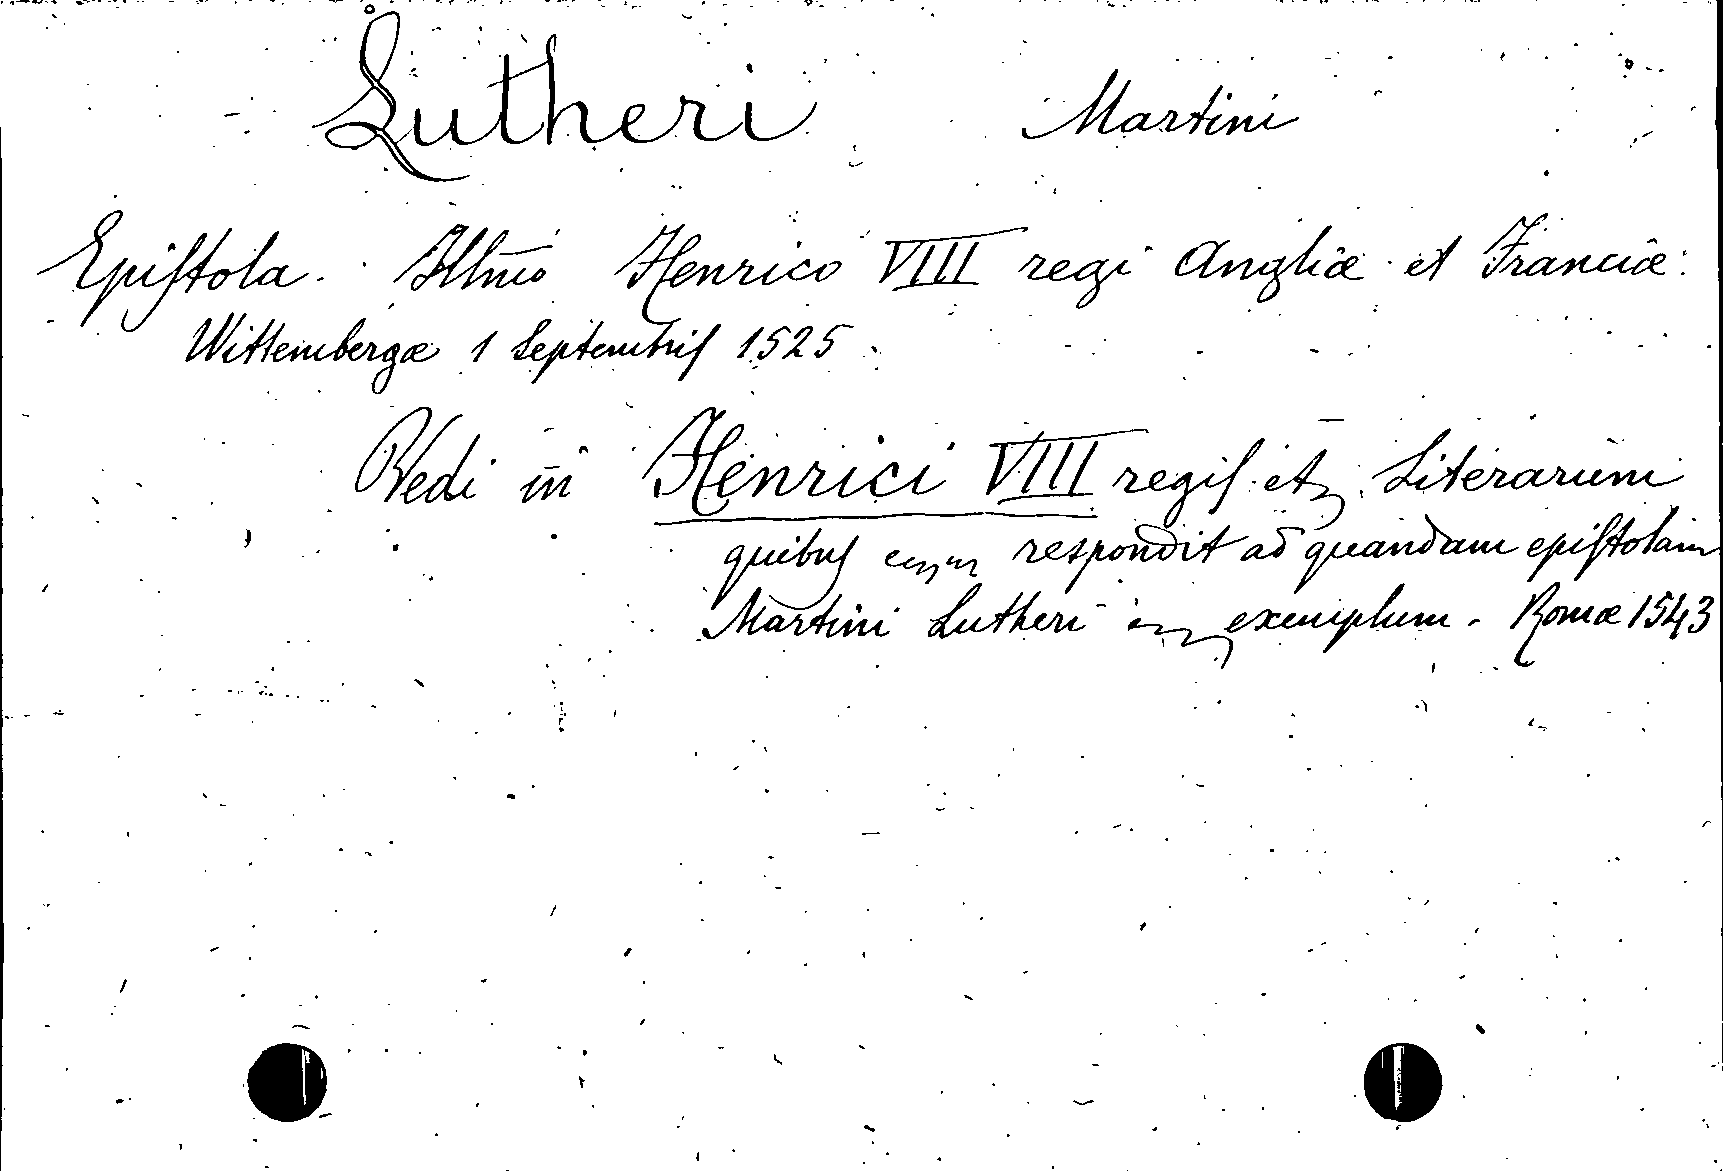 Lutheri Martini
Epiſtola. Illmo Henrico VIII regi Angliæ et Franciæ.
Wittembergæ 1 Septembriſ 1525
Vedi in Henrici VIII regiſ et Literarum
quibuſ respondit ad quandam epiſtolam
Martini Lutheri exemplum. Romæ 1543